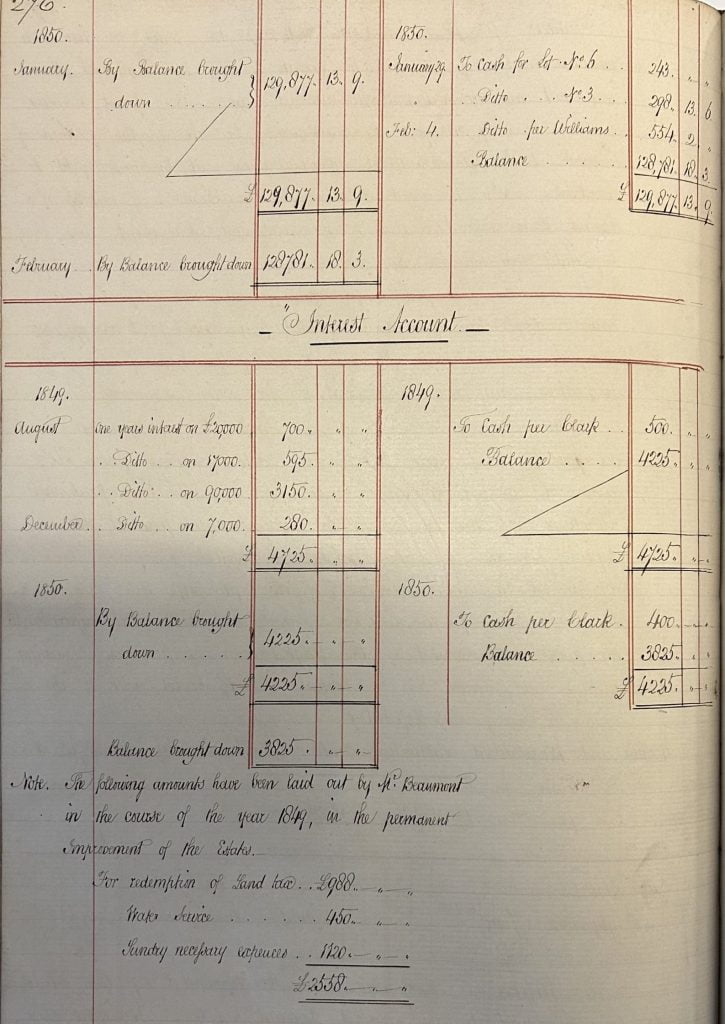 276.
1850.
January. By Balance brought
down . . . . . } 129,877. 13. 9.
£ 129,877. 13. 9.
February. . By Balance brought down 128781. 18. 3.
1850.
January 29. To Cash for Lot No. 6 . . 243. " "
" Ditto . . . No. 3 . . . 298. 13. 6
Feb: 4. Ditto per Williams . . 554. 2. "
Balance . . . . . . 128,781. 18. 3.
£ 129,877. 13. 9
Interest Account.
1849.
August One years interest on £20,000 700. " "
. . Ditto . . on 17000. 595. " "
. . Ditto . . on 90,000 3150. " "
December. . Ditto . . on 7,000. 280. " "
£ 4725. " "
1849.
To Cash per Clark . . . 500. " "
Balance . . . . 4225. " "
£ 4725. " "
1850.
By Balance brought
down . . . . . } 4225. " "
£ 4225. " "
Balance brought down 3825. " "
1850.
To Cash per Clark . 400. " "
Balance . . . . . 3825. " "
£ 4225. " "
Note. The following amounts have been laid out by Mr. Beaumont
in the course of the year 1849, in the permanent
Improvement of the Estates.
For redemption of Land tax . . £988. " "
Water Service . . . . . . 450. " "
Sundry necessary expences . . 1120. " "
£2558. " "